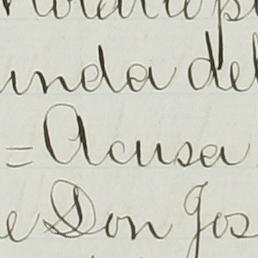 unda del
= Acusa
e Don Jos